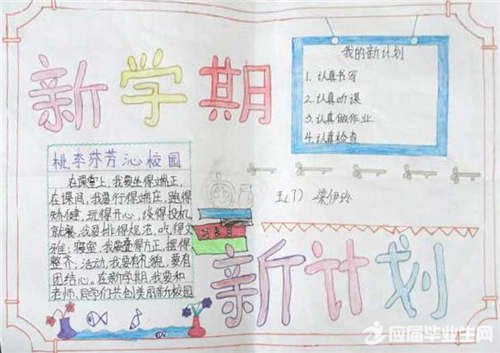 新学期
我的新计划
1. 认真书写
2. 认真听课
3. 认真做作业
4. 认真检查
桃李芬芳沁校园
在课堂上,我要坐得端正,
在课间,我要行得端庄,跑得
矫健,玩得开心,谈得投机,
就餐,我要排得规范,吃得文
雅,寝室,我要叠得方正,摆得
整齐,活动,我要有礼貌,要有
团结心。在新学期,我要和
老师、同学们共创美丽的校园
五(7) 梁伊玲
新计划
应届毕业生网